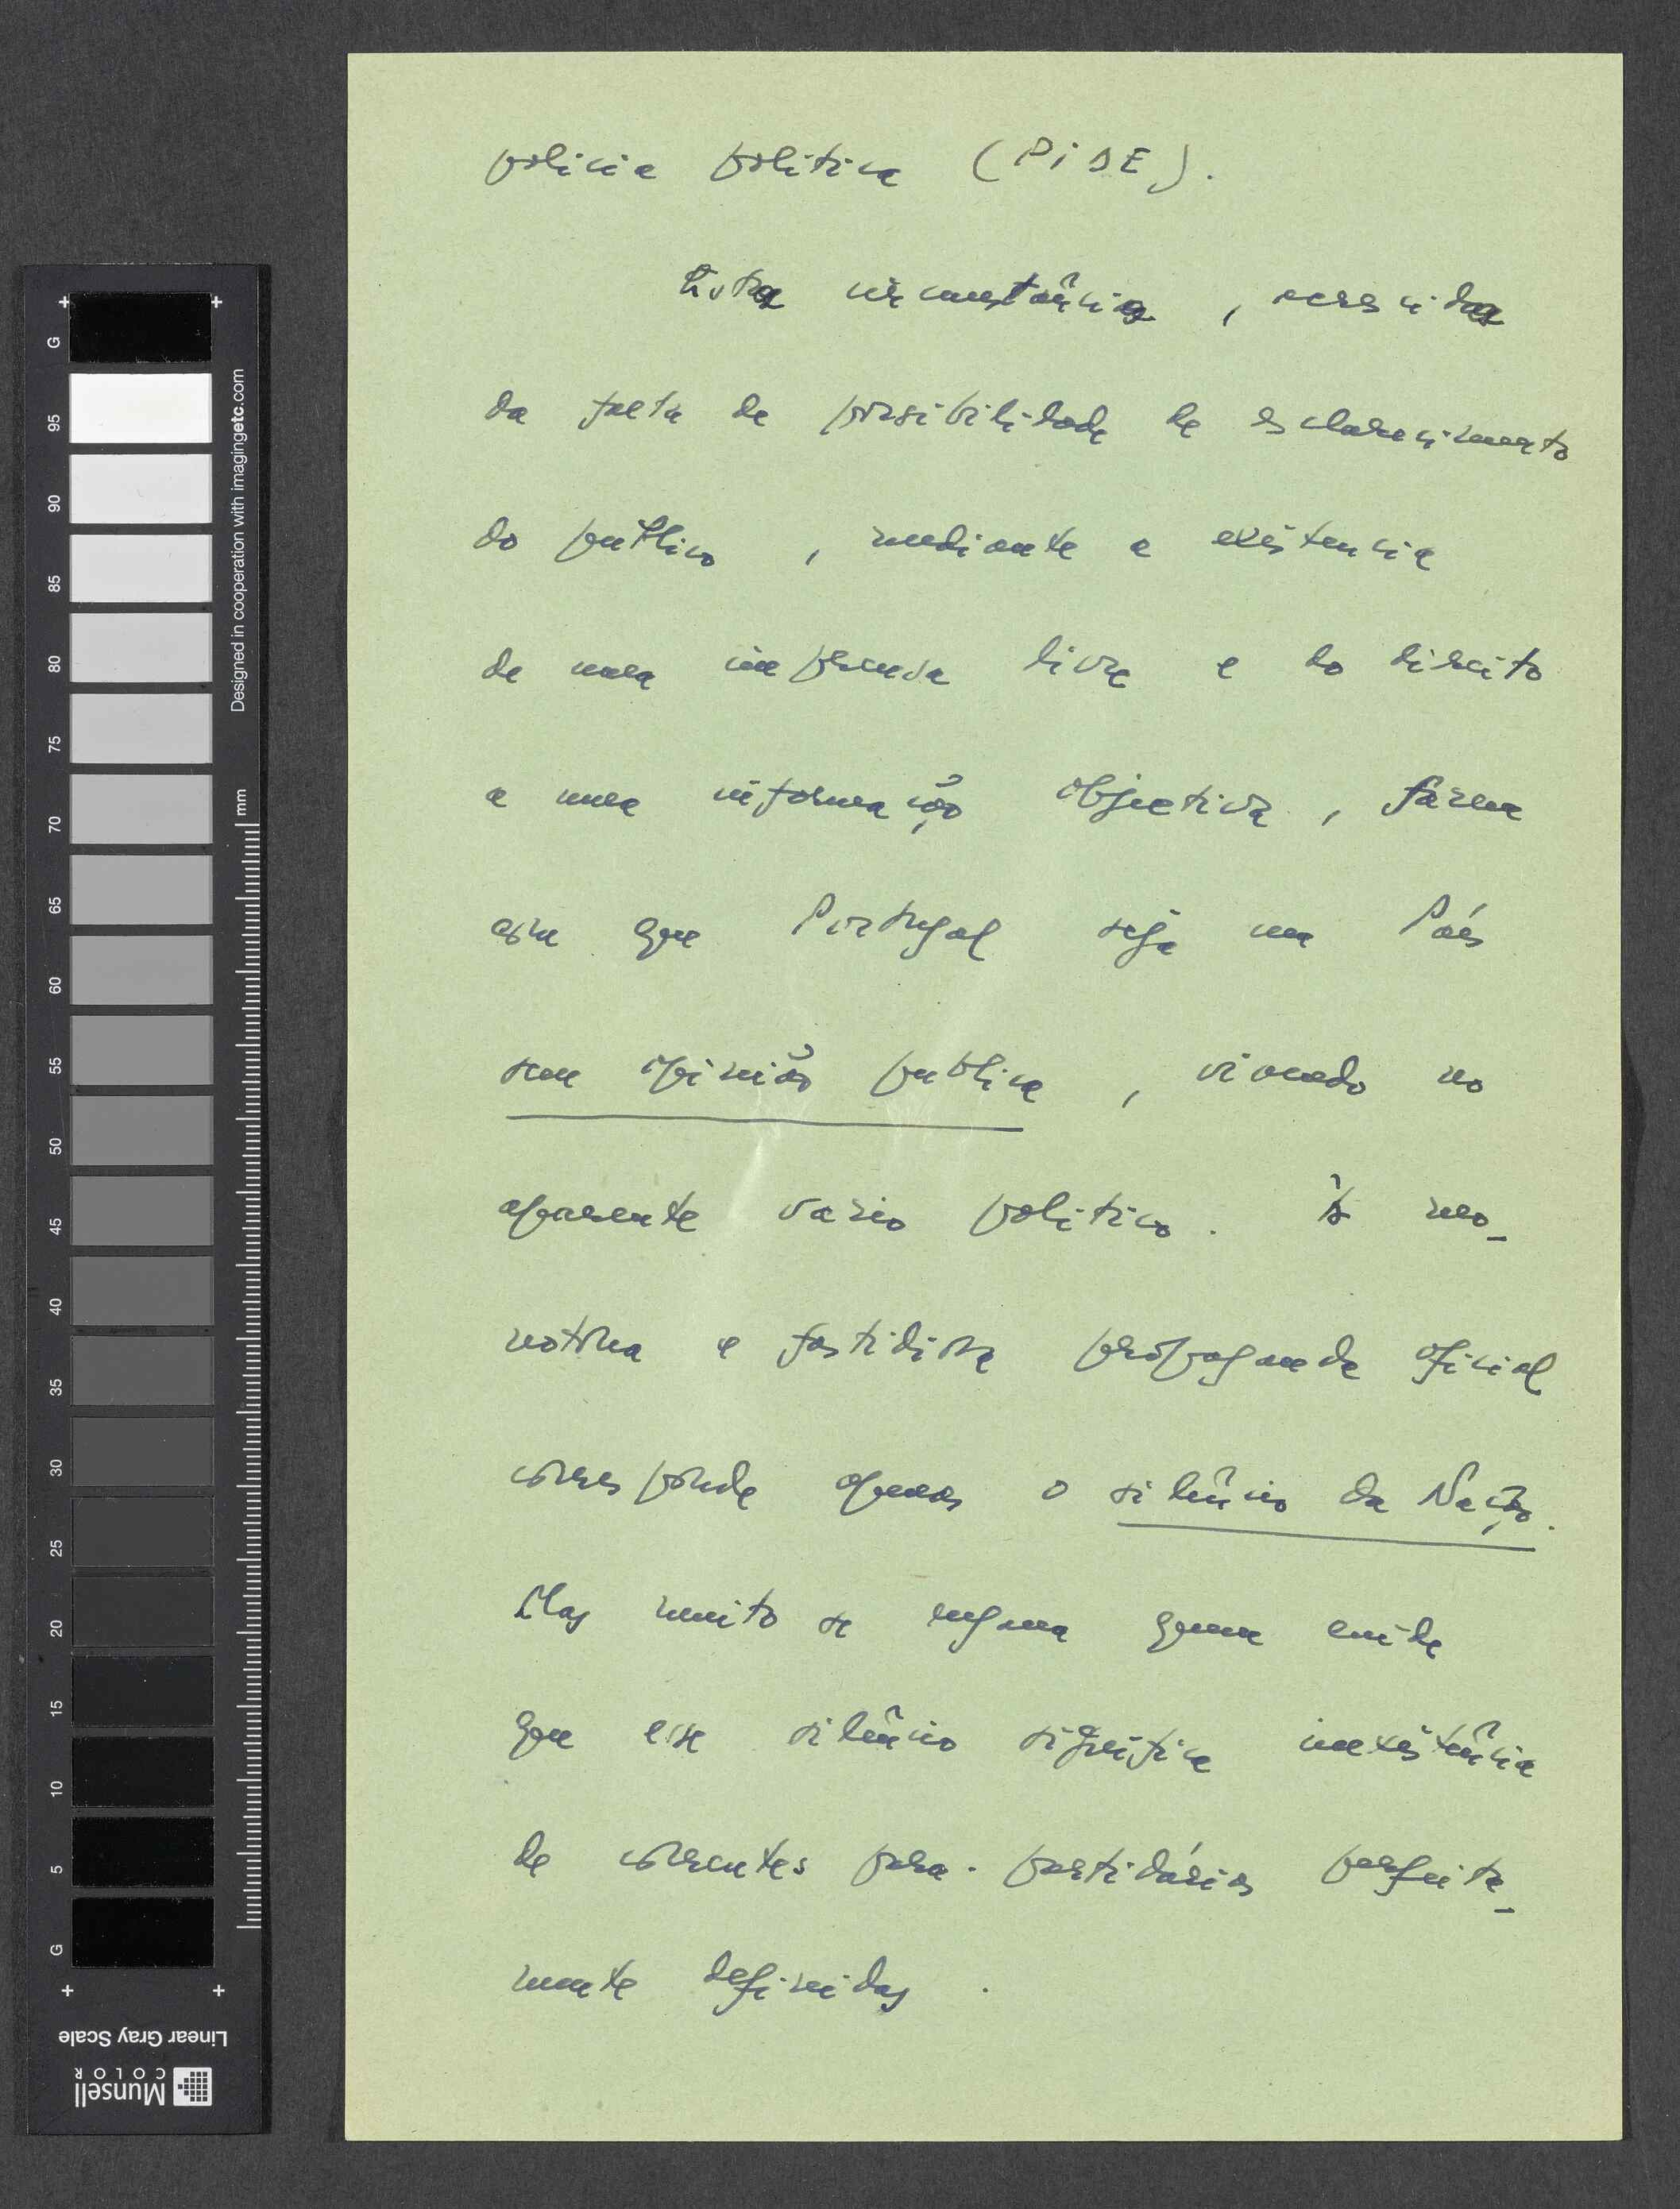 policia politica (PIDE).
Esta circunstância, acrescida
da falta de possibilidade de esclarecimento
do publico, mediante a existencia
de uma imprensa livre e do direito
a uma informação objectiva, fazem
com que Portugal seja um País
sem opinião publica, vivendo no
aparente vazio politico. À mo_
notona e fastidiosa propaganda oficial
corresponde apenas o silêncio da Nação.
Mas muito se engana quem cuide
que esse silêncio significa inexistência
de correntes para-partidárias perfeita_
mente definidas.
G
95
90
85
80
75
70
65
60
55
50
45
40
35
30
25
20
15
10
5
G
mm
Designed in cooperation with imagingetc.com
Linear Gray Scale
Munsell
COLOR